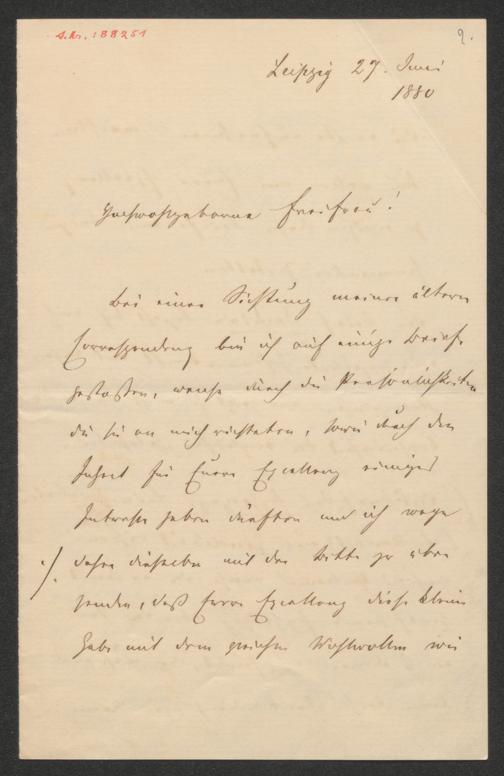 A.Nr.: 188251
2.
Leipzig 27. Juni
1880
Hochwohlgeborne Freifrau!
Bei einer Sichtung meiner ältern
Correspondenz bin ich auf einige Briefe
gestoßen, welche durch die Persönlichkeiten
die sie an mich richteten, sowie durch den
Inhalt für Euere Excellenz einiges
Interesse haben dürften und ich wage
./. daher dieselben mit der Bitte zu über
senden, daß Euere Excellenz diese kleine
Gabe mit dem gleichen Wohlwollen wie